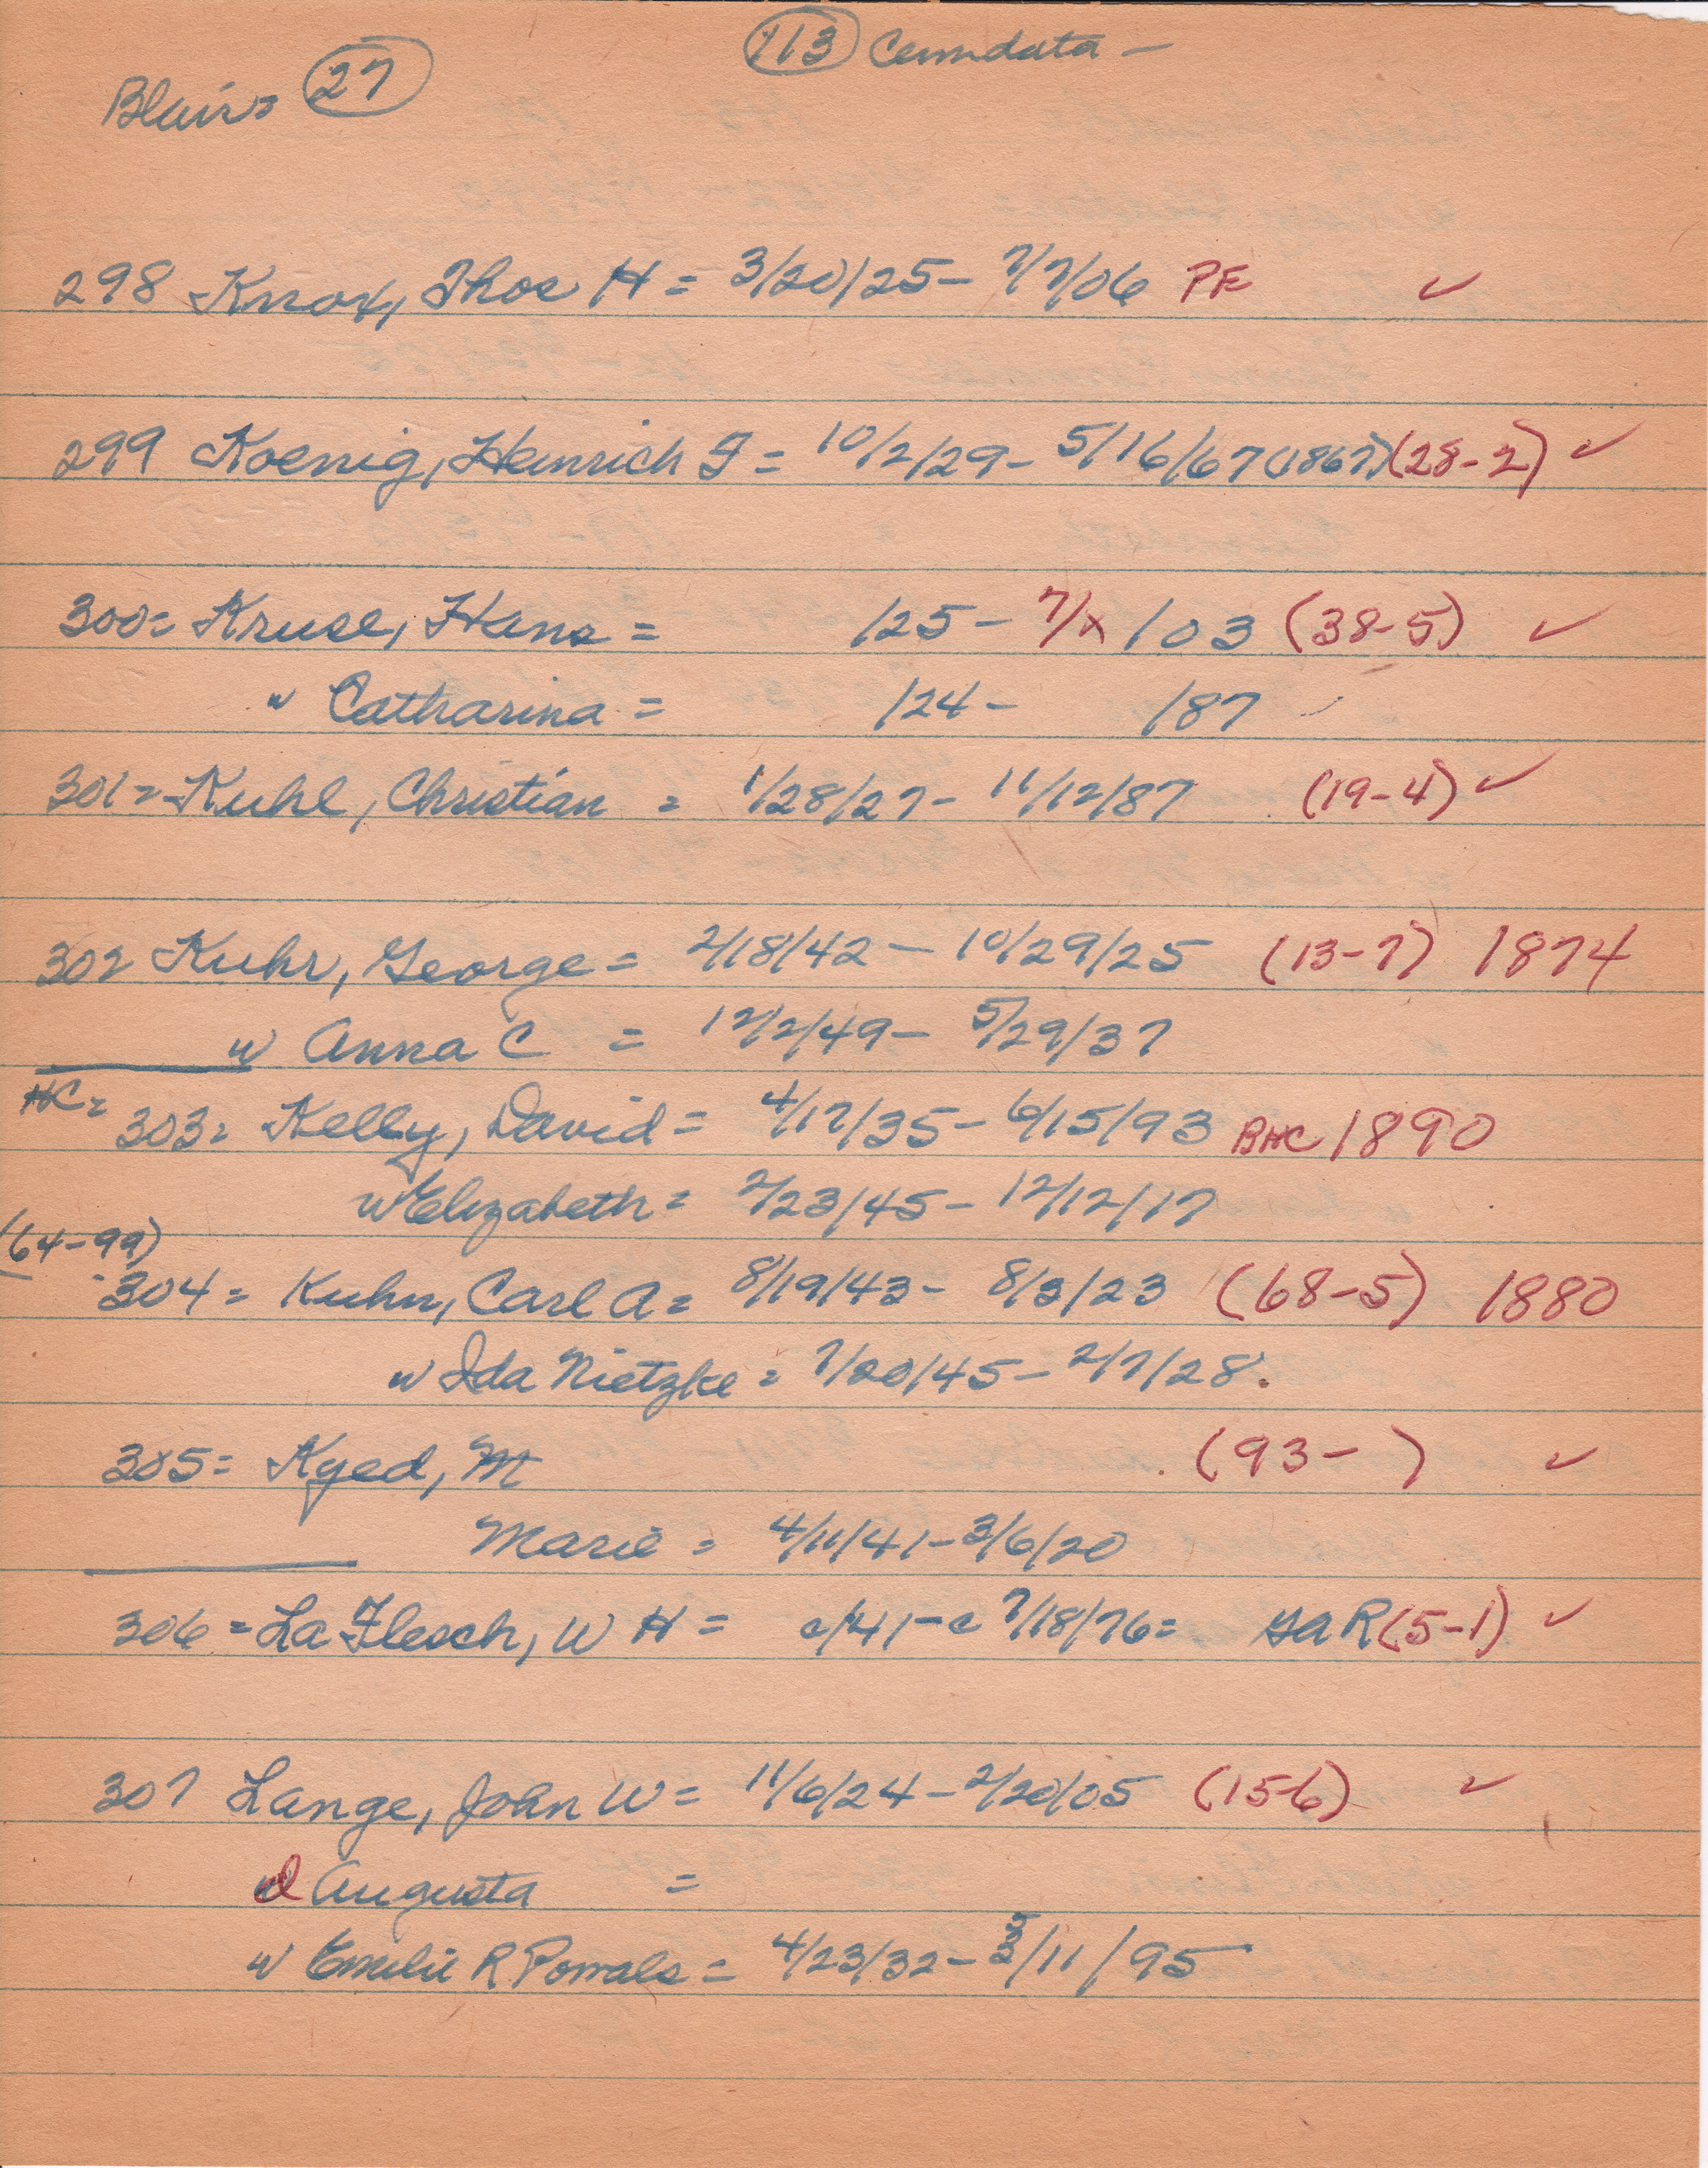 113 Cemdata -
Blair = 27
298 Knox, Thos H = 3/20/25 - 7/7/06 PF ✓
299 Koenig, Heinrich F = 10/2/29 - 5/16/67 (1867) (28-2) ✓
300 = Kruse, Hans = /25 - 7/x /03 (38-5) ✓
w Catharina = /24 - /87
301 = Kuhl, Christian = 1/28/27 - 11/12/87 (19-4) ✓
302 Kuhr, George = 2/18/42 - 10/29/25 (13-7) 1874
w Anna C = 12/2/49 - 5/29/37
HC =
303 = Kelly, David = 4/17/35 - 6/15/93 BHC 1890
w Elizabeth = 2/23/45 - 12/12/17
(64-99)
304 = Kuhn, Carl A = 8/19/43 - 8/3/23 (68-5) 1880
w Ida Nietzke = 7/20/45 - 2/7/28.
305 = Kyed, M (93- ) ✓
Marie = 4/11/41 - 3/6/20
306 = La Flesch, W H = c/41 - c 7/18/76 = GAR (5-1) ✓
307 Lange, John W = 11/6/24 - 2/20/05 (15-6) ✓
Augusta =
w Emilie R = 4/23/32 - /11/95